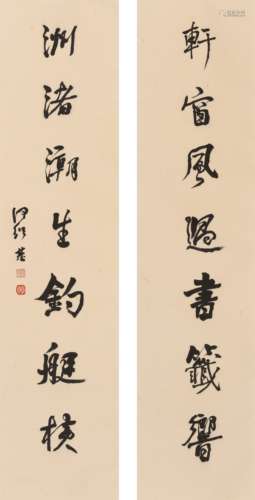 軒窗風過書籤響
洲渚潮生釣艇橫
何紹基